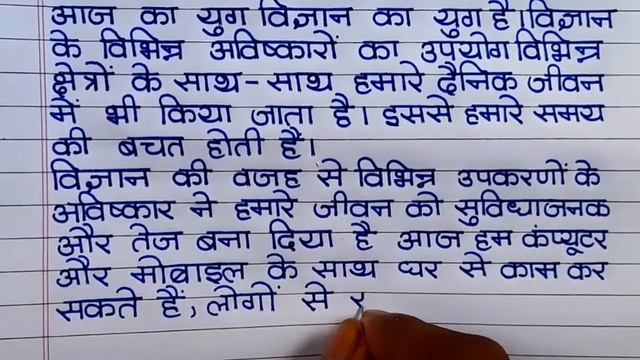 आज का युग विज्ञान का युग है। विज्ञान
के विभिन्न अविष्कारों का उपयोग विभिन्न
क्षेत्रों के साथ-साथ हमारे दैनिक जीवन
में भी किया जाता है। इससे हमारे समय
की बचत होती है।
विज्ञान की वजह से विभिन्न उपकरणों के
अविष्कार ने हमारे जीवन को सुविधाजनक
और तेज बना दिया है आज हम कंप्यूटर
और मोबाइल के साथ घर से काम कर
सकते हैं, लोगों से